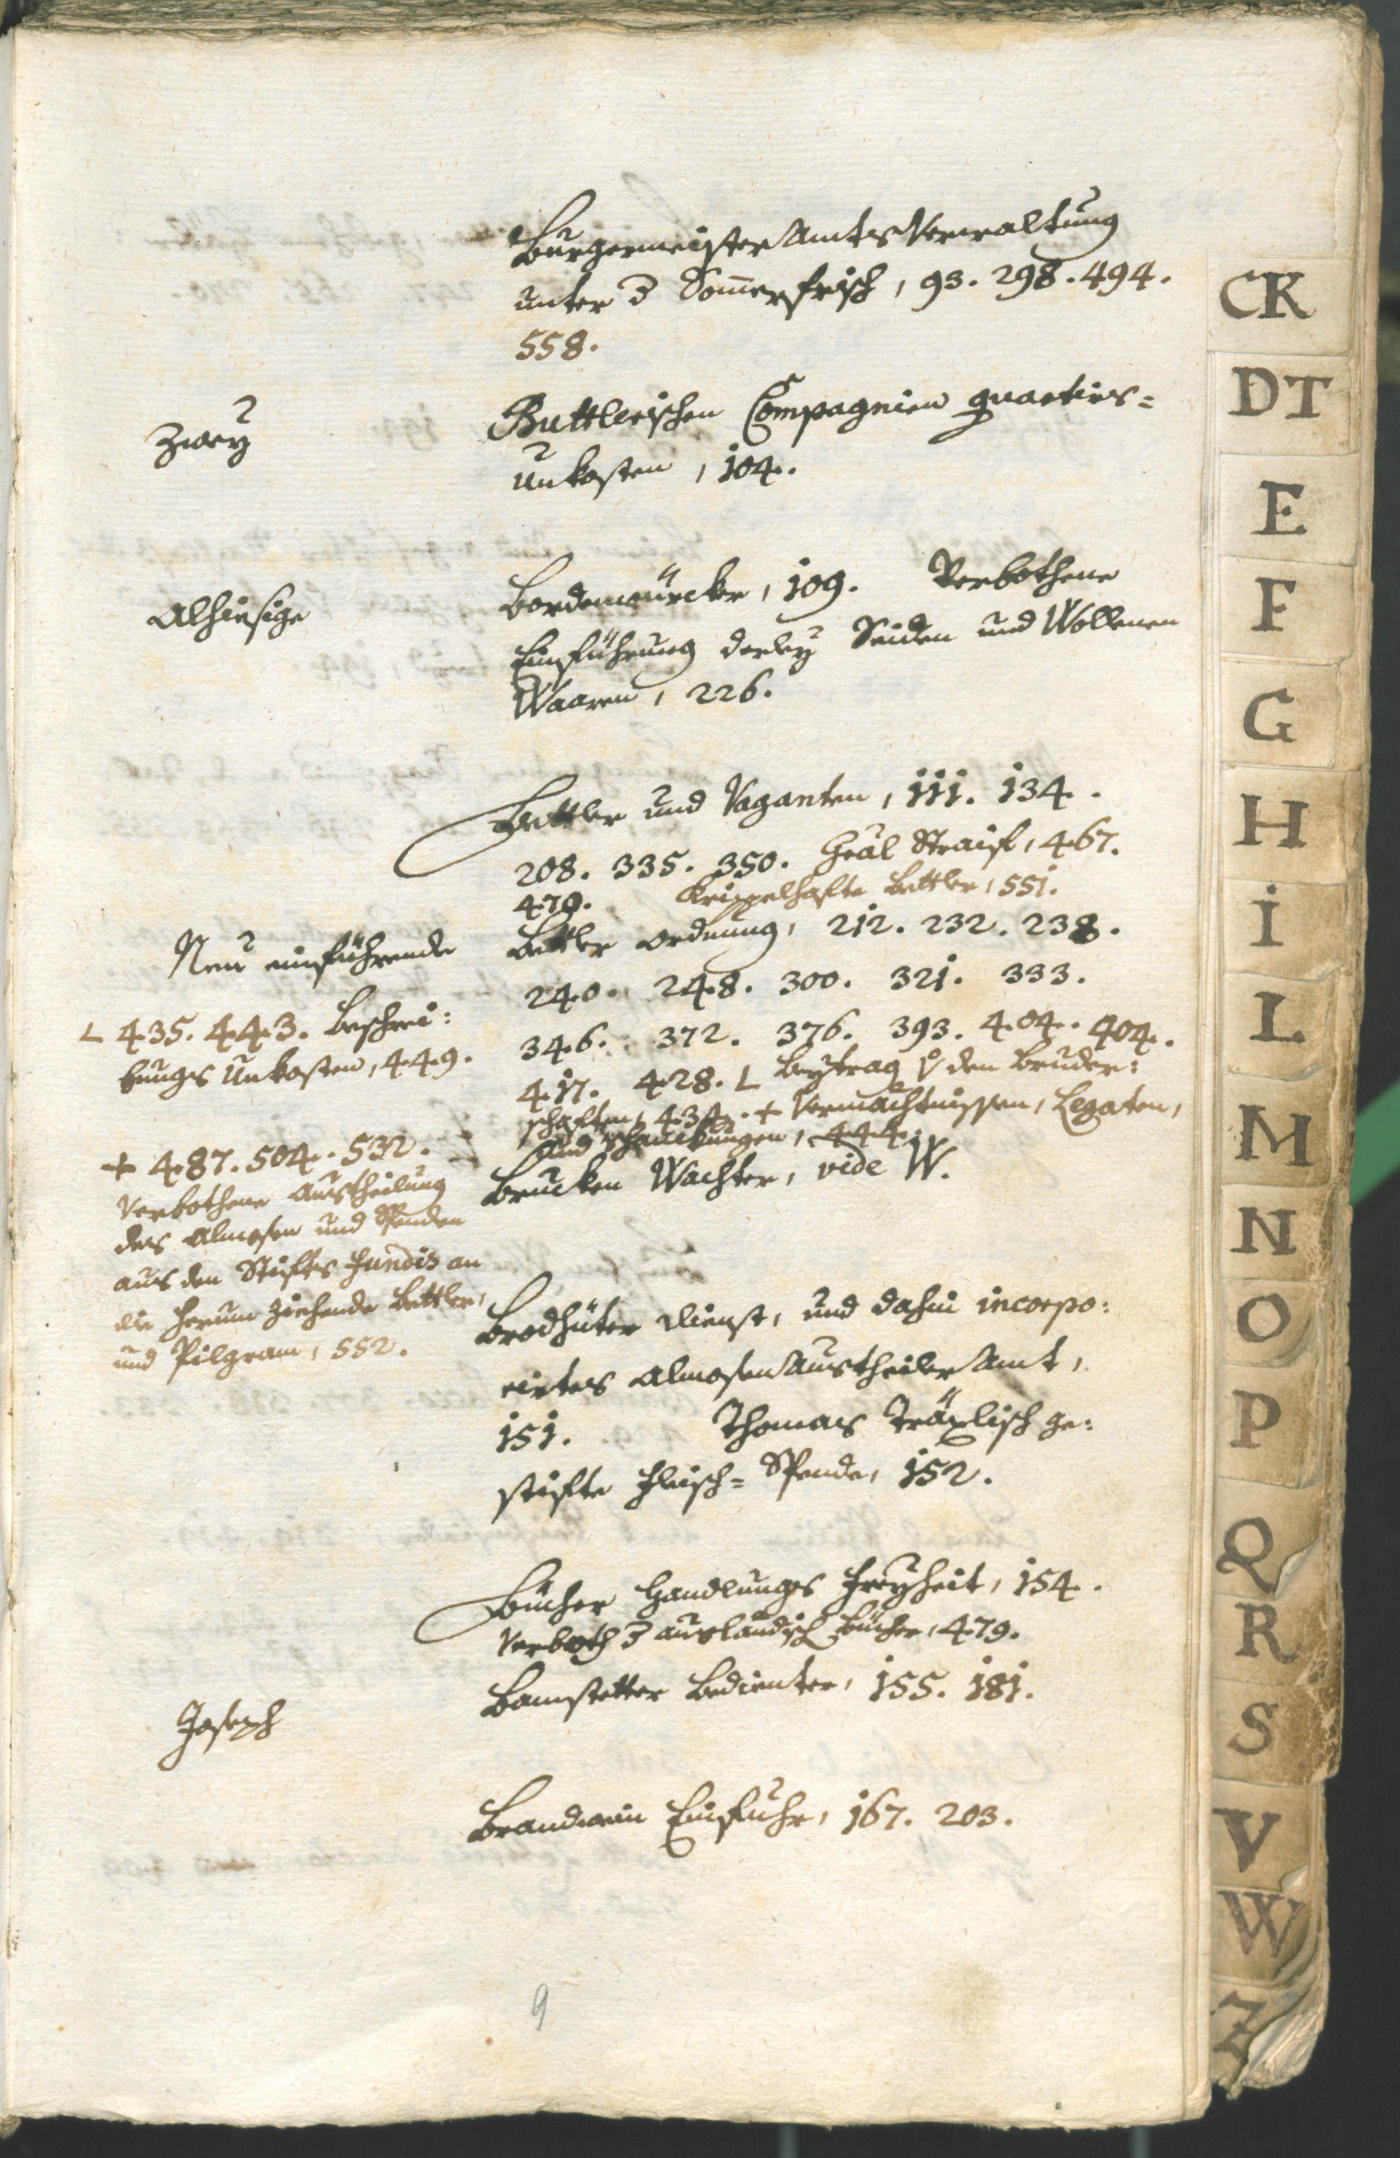 Burgermeister Amts Verwaltung
unter d Som̄erfrisch, 93. 298. 494.
558.
Zwey Buttlerischen Compagnien quartirs=
Unkosten, 104.
Alhiesige Bordenwürcker, 109. Verbothene
Einführung derley Seiden und Wollenen
Waaren, 226.
Bettler und Vaganten, 111. 134.
208. 335. 350. Gräl Straiff, 467.
479. Krippelhafte Bettler, 551.
Neu einführende Bettler ordnung, 212. 232. 238.
240. 248. 300. 321. 333.
346. 372. 376. 393. 404. 404.
417. 428. L Beytrag den Bruder:
schafften, 434. + Vermächtnissen, Legaten,
und schanckungen, 444.
L 435. 443. Beschrei:
bungs Unkosten, 449.
+ 487. 504. 532.
Verbothene Austheilung
des Almosen und Spenden
aus den Stüffts Fundis an
die herum ziehende Bettler,
und Pilgram, 552.
Brucken Wachter, vide W.
Brodhüter dienst, und dahin incorpo:
rirtes Almosen Austheiler Amt,
151. Thomas Träxlisch ge:
stiffte Fleisch= Spende, 152.
Bücher Handlungs Freyheit, 154.
Verboth d ausländisch Bücher, 479.
Joseph Bamstetter Bedienter, 155. 181.
Brandwein Einfuhr, 167. 203.
9
CK
DT
E
F
G
H
I
L
M
N
O
P
Q
R
S
V
W
Z